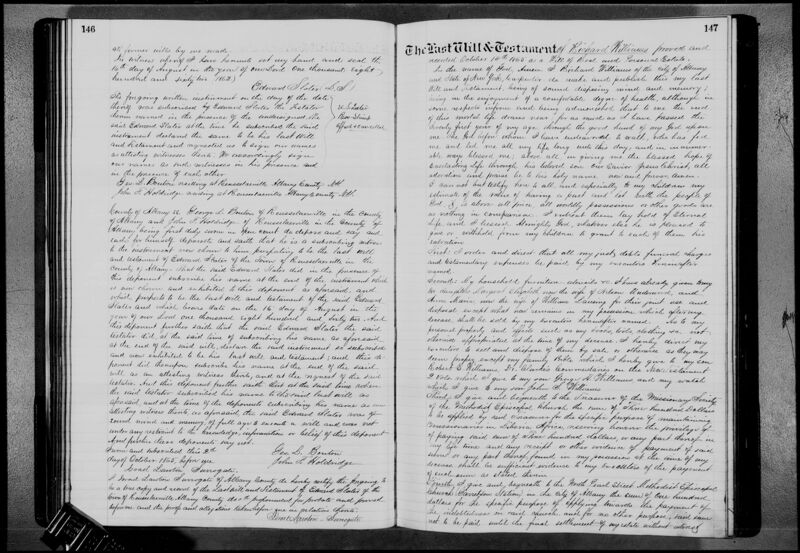 146
of former wills by me made
In witness whereof I have hereunto set my hand and seal the
16th day of August in the year of our Lord one thousand eight
hundred and sixty two (1862)
Edward Slater L.S.
The foregoing written instrument on the day of the date
thereof was subscribed by Edward Slater the testator
therein named in the presence of the undersigned the
said Edward Slater at the time he subscribed the said
instrument declared the same to be his last Will
and Testament and requested us to sign our names
as attesting witnesses thereto. We accordingly sign
our names as such witnesses in his presence and
in the presence of each other
Geo L. Bouton residing at Rensselaerville Albany County NY
John L. Holdridge residing at Rensselaerville Albany County NY
County of Albany SS George L. Bouton of Rensselaerville in the County
of Albany and John L. Holdridge of Rensselaerville in the County of
Albany being first duly sworn in open court do depose and say and
each for himself deposeth and saith that he is a subscribing witness
to the instrument now shown to him purporting to be the last will
and testament of Edward Slater of the Town of Rensselaerville in the
County of Albany. That the said Edward Slater did in the presence of
this deponent subscribe his name at the end of the instrument which
is now shown and exhibited to this deponent as aforesaid, and
which purports to be the last will and testament of the said Edward
Slater and which bears date on the 16 day of August in the
year of our Lord one thousand eight hundred and sixty two. And
this deponent further saith that the said Edward Slater the said
testator did, at the said time of subscribing his name as aforesaid
at the end of the said will, declare the said instrument so subscribed
and now exhibited to be his last will and testament; and this de-
ponent did thereupon subscribe his name at the end of the said
will as an attesting witness thereto, and at the request of the said
testator. And this deponent further saith that at the said time when
the said testator subscribed his name to the said last will as
aforesaid and at the time of the deponents subscribing his name as an
attesting witness thereto as aforesaid, the said Edward Slater was of
sound mind and memory, of full age to execute a will and was not
under any restraint to the knowledge information or belief of this deponent
And further these deponents say not.
Sworn and subscribed this 2d
day of October 1865, before me
Israel Lawton Surrogate.
Geo L. Bouton
John L. Holdridge
I Israel Lawton Surrogate of Albany County do hereby certify the foregoing to
be a true copy and record of the last Will and Testament of Edward Slater of the
Town of Rensselaerville Albany County
before me and the proofs and allegations taken before me in relation thereto.
Israel Lawton Surrogate
147
The Last Will & Testament of Richard Williams proved and
recorded October 10th 1865 as a Will of Real and Personal Estate.
In the name of God, Amen. I Richard Williams of the City of Albany
and State of New York, Carpenter do make and publish this my last
Will and Testament, being of sound disposing mind and memory;
being in the enjoyment of a comfortable degree of health, although in
some respects infirm and being admonished that to me the end
of this mortal life draws near, for as much as I have passed the
seventy first year of my age through the good hand of my God upon
me The God before whom I have endeavored to walk, who has fed
me and led me all my life long unto this day, and in innumer-
able ways blessed me, above all in giving me the blessed hope of
everlasting life through his beloved son Our Savior Jesus Christ, all
adoration and praise be to his holy name now and forever Amen.
I can not but testify here to all, and especially to my children my
estimate of the value of having a part and lot with the people of
God, it is above all price, all worldly possessions or other goods are
as nothing in comparison. I entreat them lay hold of Eternal
life, and O blessed Almighty God, whatever else he is pleased to
give or withhold from my children to grant to each of them his
salvation
First: I order and direct that all my just debts funeral charges
and testamentary expenses be paid by my executors hereinafter
named.
Second: My household furniture whereof I have already given to my
two daughters Margaret Elizabeth now the wife of Nelson and
Ann Maria now the wife of William Lansing for their joint use and
disposal, except what now remains in my possession, which after my
decease shall be sold by my Executors hereinafter named. As to my
personal property and effects such as my books, tools, clothing &c. not
otherwise appropriated at the time of my decease, I hereby direct my
executors to sell and dispose of them by sale, or otherwise as they may
deem proper, except my family Bible which I hereby give to my son
Robert G. Williams, Dr. Clarkes Commentaries on the New Testament
2 vols which I give to my son George H. Williams and my watch
which I give to my son John Williams.
Third; I give and bequeath to the Treasurer of the Missionary Society
of the Methodist Episcopal Church, the sum of Five hundred Dollars
to be applied by said Treasurer for the specific purpose of maintaining
Missionaries in Liberia Africa, reserving however the privilege of
of paying said sum of Five hundred dollars, or any part thereof in
my life time and any receipt or other evidence of payment of said
sum or any part thereof, found in my possession at the time of my
decease shall be sufficient evidence to my Executors of the payment
of such sum as stated therein.
Fourth; I give and bequeath to the North Pearl Street Methodist Episcopal
Church (Garrettson Station) in the City of Albany the sum of One hundred
dollars for the specific purpose of applying towards the payment of
the indebtedness on said church and for no other purpose, said sum
not to be paid until the final settlement of my estate without interest